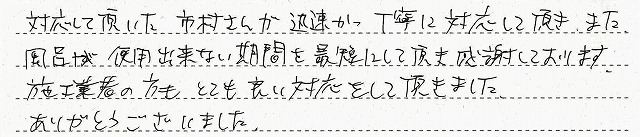 対応して頂いた 市村さんが 迅速かつ 丁寧に 対応して頂き、また、
風呂が 使用出来ない期間を 最短にして頂き 感謝しております。
施工業者の方も とても良い対応をして頂きました。
ありがとうございました。